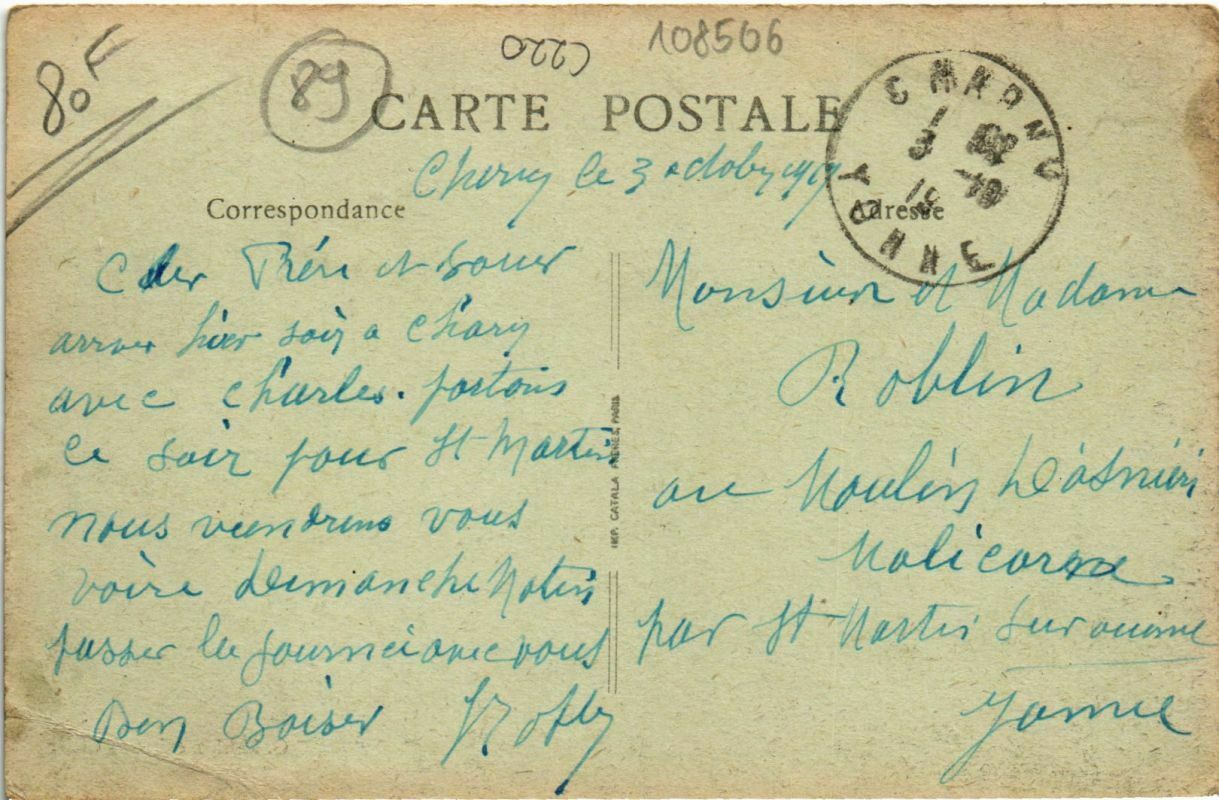 80F
89
C220
108506
CARTE POSTALE
CHARNY
YONNE
3 -10
19
Charny le 3 octobre 1919
Correspondance
Adresse
Cher Frére et Soeur
arriver hier soir a Charny
avec Charles. partons
ce soir pour St Martin
nous viendrons vous
voire Dimanche Matin
passer la journeé avec vous
Bon Baiser
IMP. CATALA FRÈRES, PARIS
Monsieur et Madame
Roblin
au Moulin D'Asnieri
Malicorne
par St Martin sur ouanne
Yonne